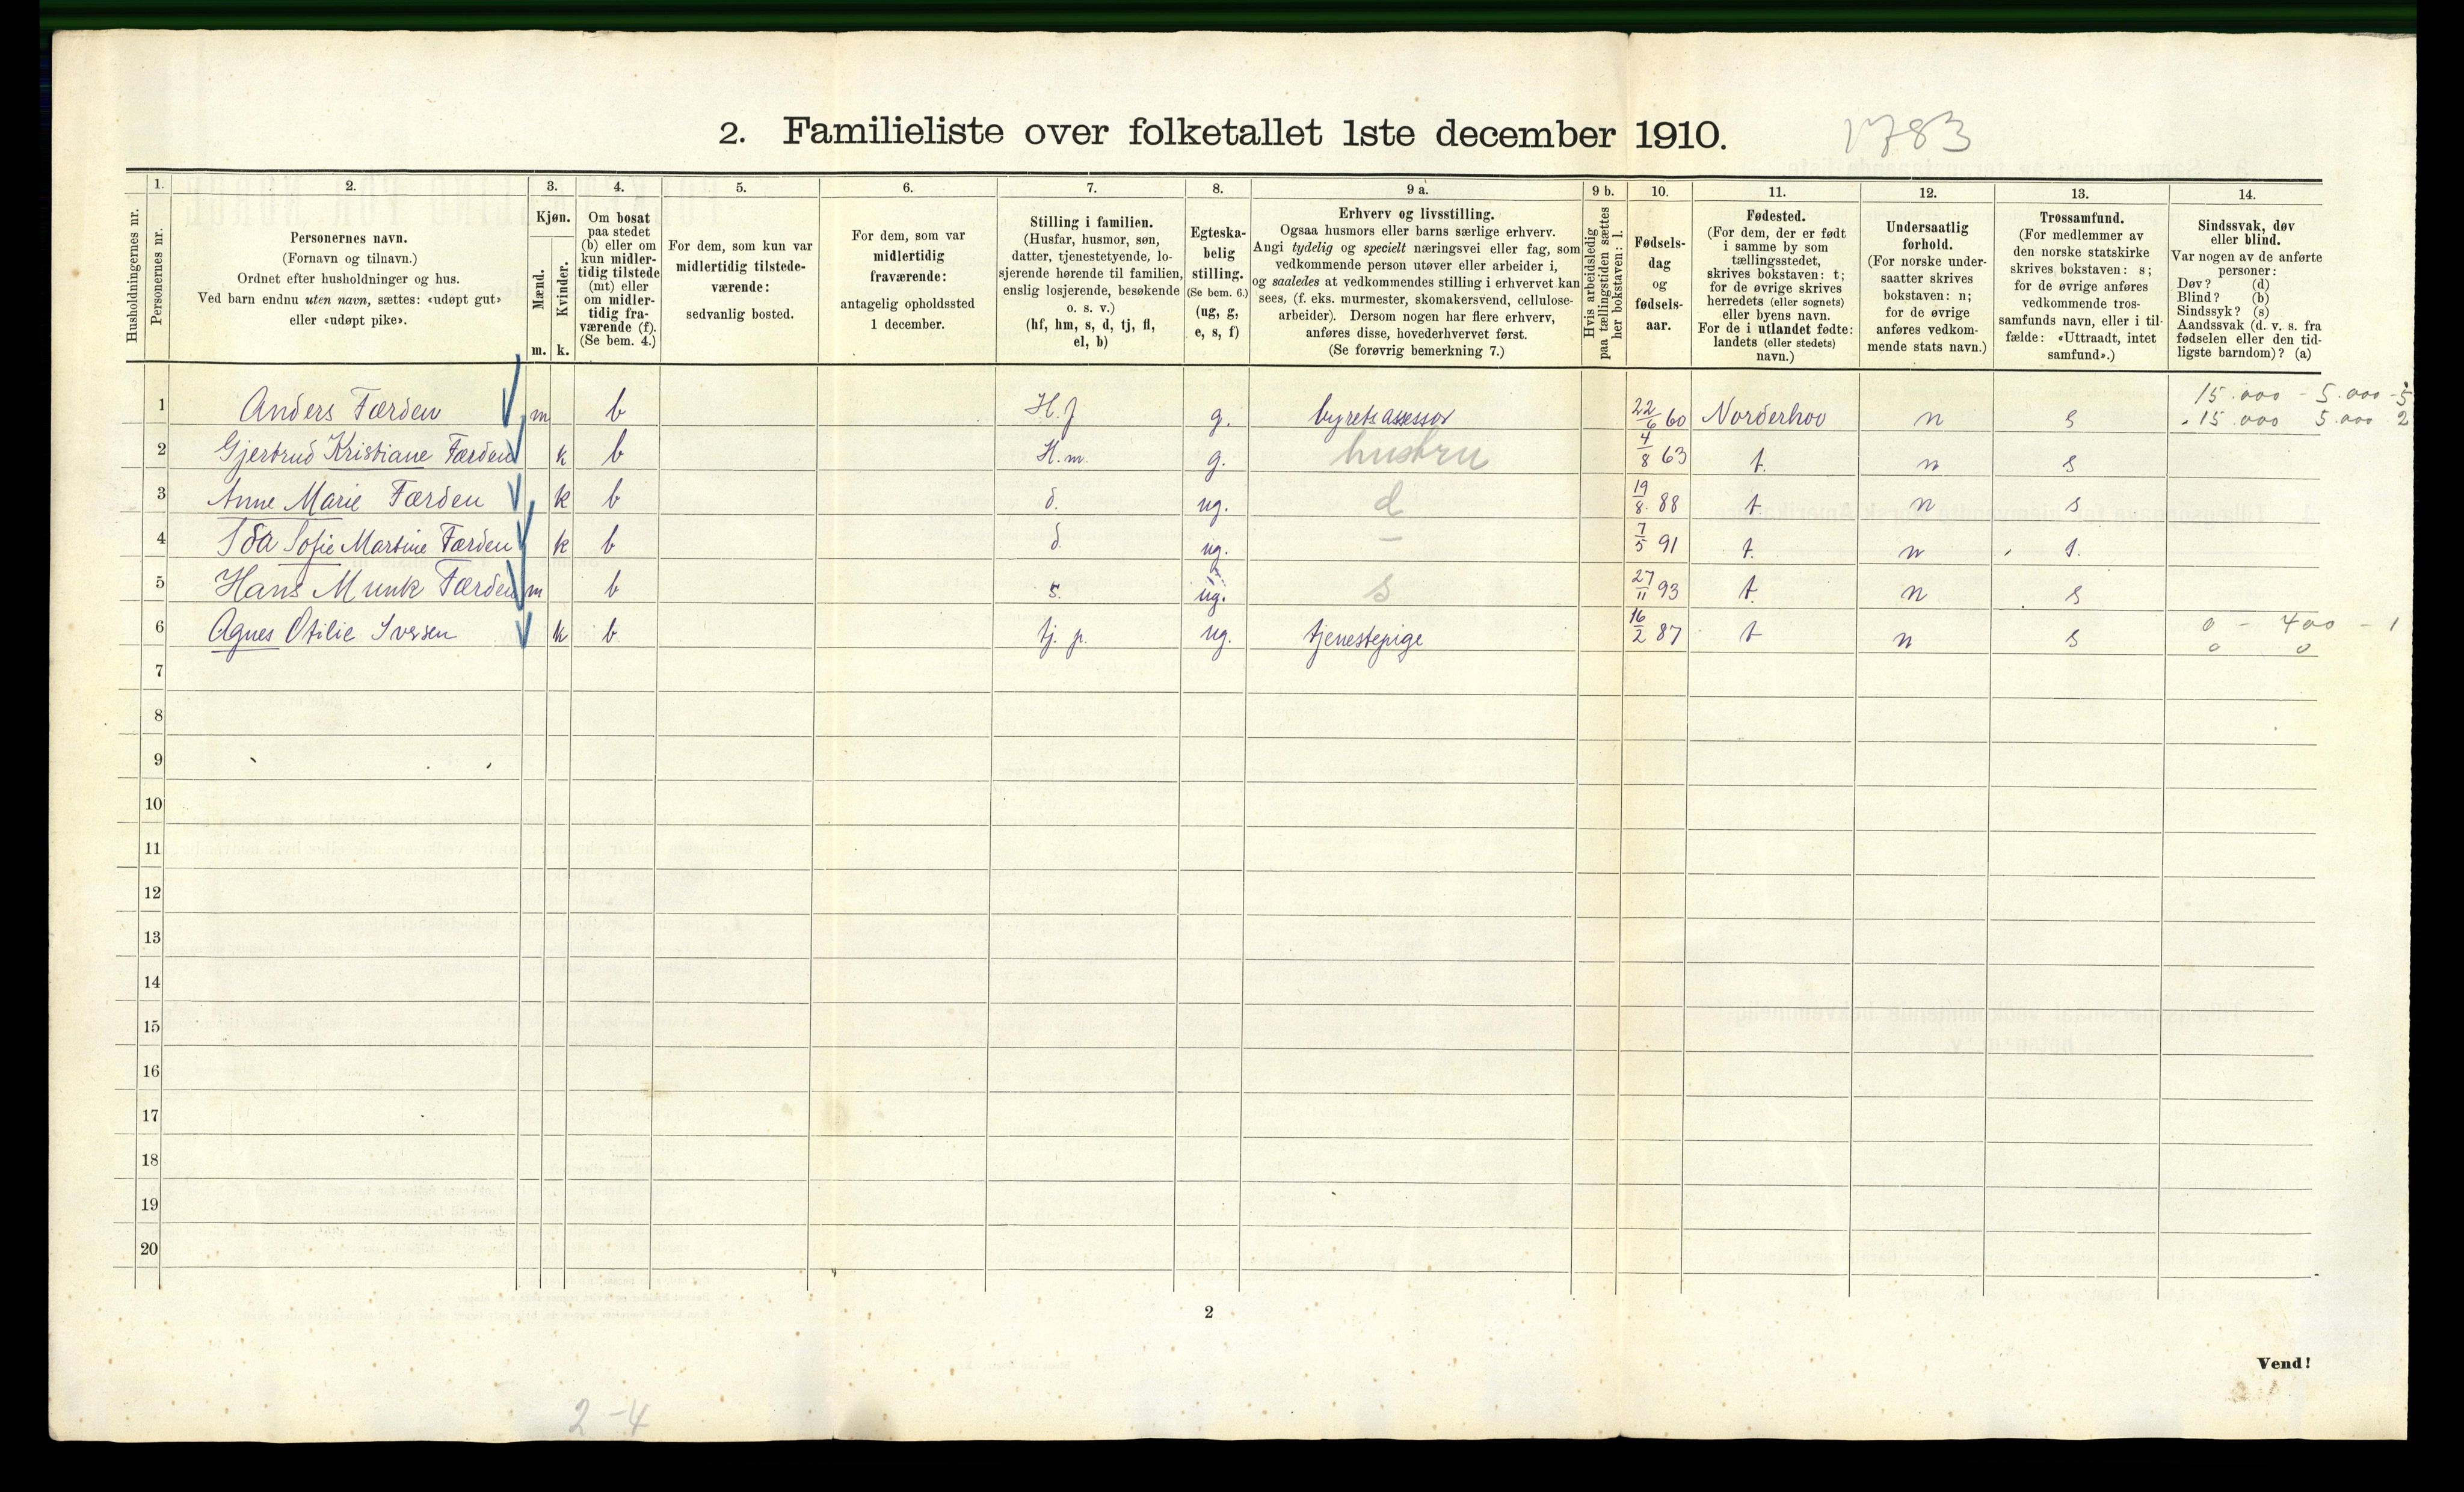 2. Familieliste over folketallet 1ste december 1910. 1783
Husholdningernes nr.
1.
Personernes nr.
2.
Personernes navn.
(Fornavn og tilnavn.)
Ordnet efter husholdninger og hus.
Ved barn endnu uten navn, sættes: «udøpt gut»
eller «udøpt pike».
3.
Kjøn.
Mænd.
m.
Kvinder.
k.
4.
Om bosat
paa stedet
(b) eller om
kun midler-
tidig tilstede
(mt) eller
om midler-
tidig fra-
værende (f).
(Se bem. 4.)
5.
For dem, som kun var
midlertidig tilstede-
værende:
sedvanlig bosted.
6.
For dem, som var
midlertidig
fraværende:
antagelig opholdssted
1 december.
7.
Stilling i familien.
(Husfar, husmor, søn,
datter, tjenestetyende, lo-
sjerende hørende til familien,
enslig losjerende, besøkende
o. s. v.)
(hf, hm, s, d, tj, fl,
el, b)
8.
Egteska-
belig
stilling.
(Se bem. 6.)
(ug, g,
e, s, f)
9 a.
Erhverv og livsstilling.
Ogsaa husmors eller barns særlige erhverv.
Angi tydelig og specielt næringsvei eller fag, som
vedkommende person utøver eller arbeider i,
og saaledes at vedkommendes stilling i erhvervet kan
sees, (f. eks. murmester, skomakersvend, cellulose-
arbeider). Dersom nogen har flere erhverv,
anføres disse, hovederhvervet først.
(Se forøvrig bemerkning 7.)
9 b.
Hvis arbeidsledig
paa tællingstiden sættes
her bokstaven: l.
10.
Fødsels-
dag
og
fødsels-
aar.
11.
Fødested.
(For dem, der er født
i samme by som
tællingsstedet,
skrives bokstaven: t;
for de øvrige skrives
herredets (eller sognets)
eller byens navn.
For de i utlandet fødte:
landets (eller stedets)
navn.)
12.
Undersaatlig
forhold.
(For norske under-
saatter skrives
bokstaven: n;
for de øvrige
anføres vedkom-
mende stats navn.)
13.
Trossamfund.
(For medlemmer av
den norske statskirke
skrives bokstaven: s;
for de øvrige anføres
vedkommende tros-
samfunds navn, eller i til-
fælde: «Uttraadt, intet
samfund».)
14.
Sindssvak, døv
eller blind.
Var nogen av de anførte
personer:
Døv? (d)
Blind? (b)
Sindssyk? (s)
Aandssvak (d. v. s. fra
fødselen eller den tid-
ligste barndom)? (a)
15.000 - 5.000 - 5
1 Anders Færden m b H.f g. byretsassessor 22/6 60 Norderhov n s 15.000 5.000 2
2 Gjertrud Kristiane Færden k b H.m. g. hustru 4/8 63 t. n s
3 Anne Marie Færden k b d. ug. d 19/8 88 t n s
4 Ida Sofie Martine Færden k b d. ug. – 7/5 91 t. n s.
5 Hans Munk Færden m b s. ug. s 27/11 93 t. n s
6 Agnes Otilie Iversen k b tj. p. ug. tjenestepige 16/2 87 t n s 0 - 400 - 1
0 0
7
8
9
10
11
12
13
14
15
16
17
18
19
20
2
Vend!
2 - 4